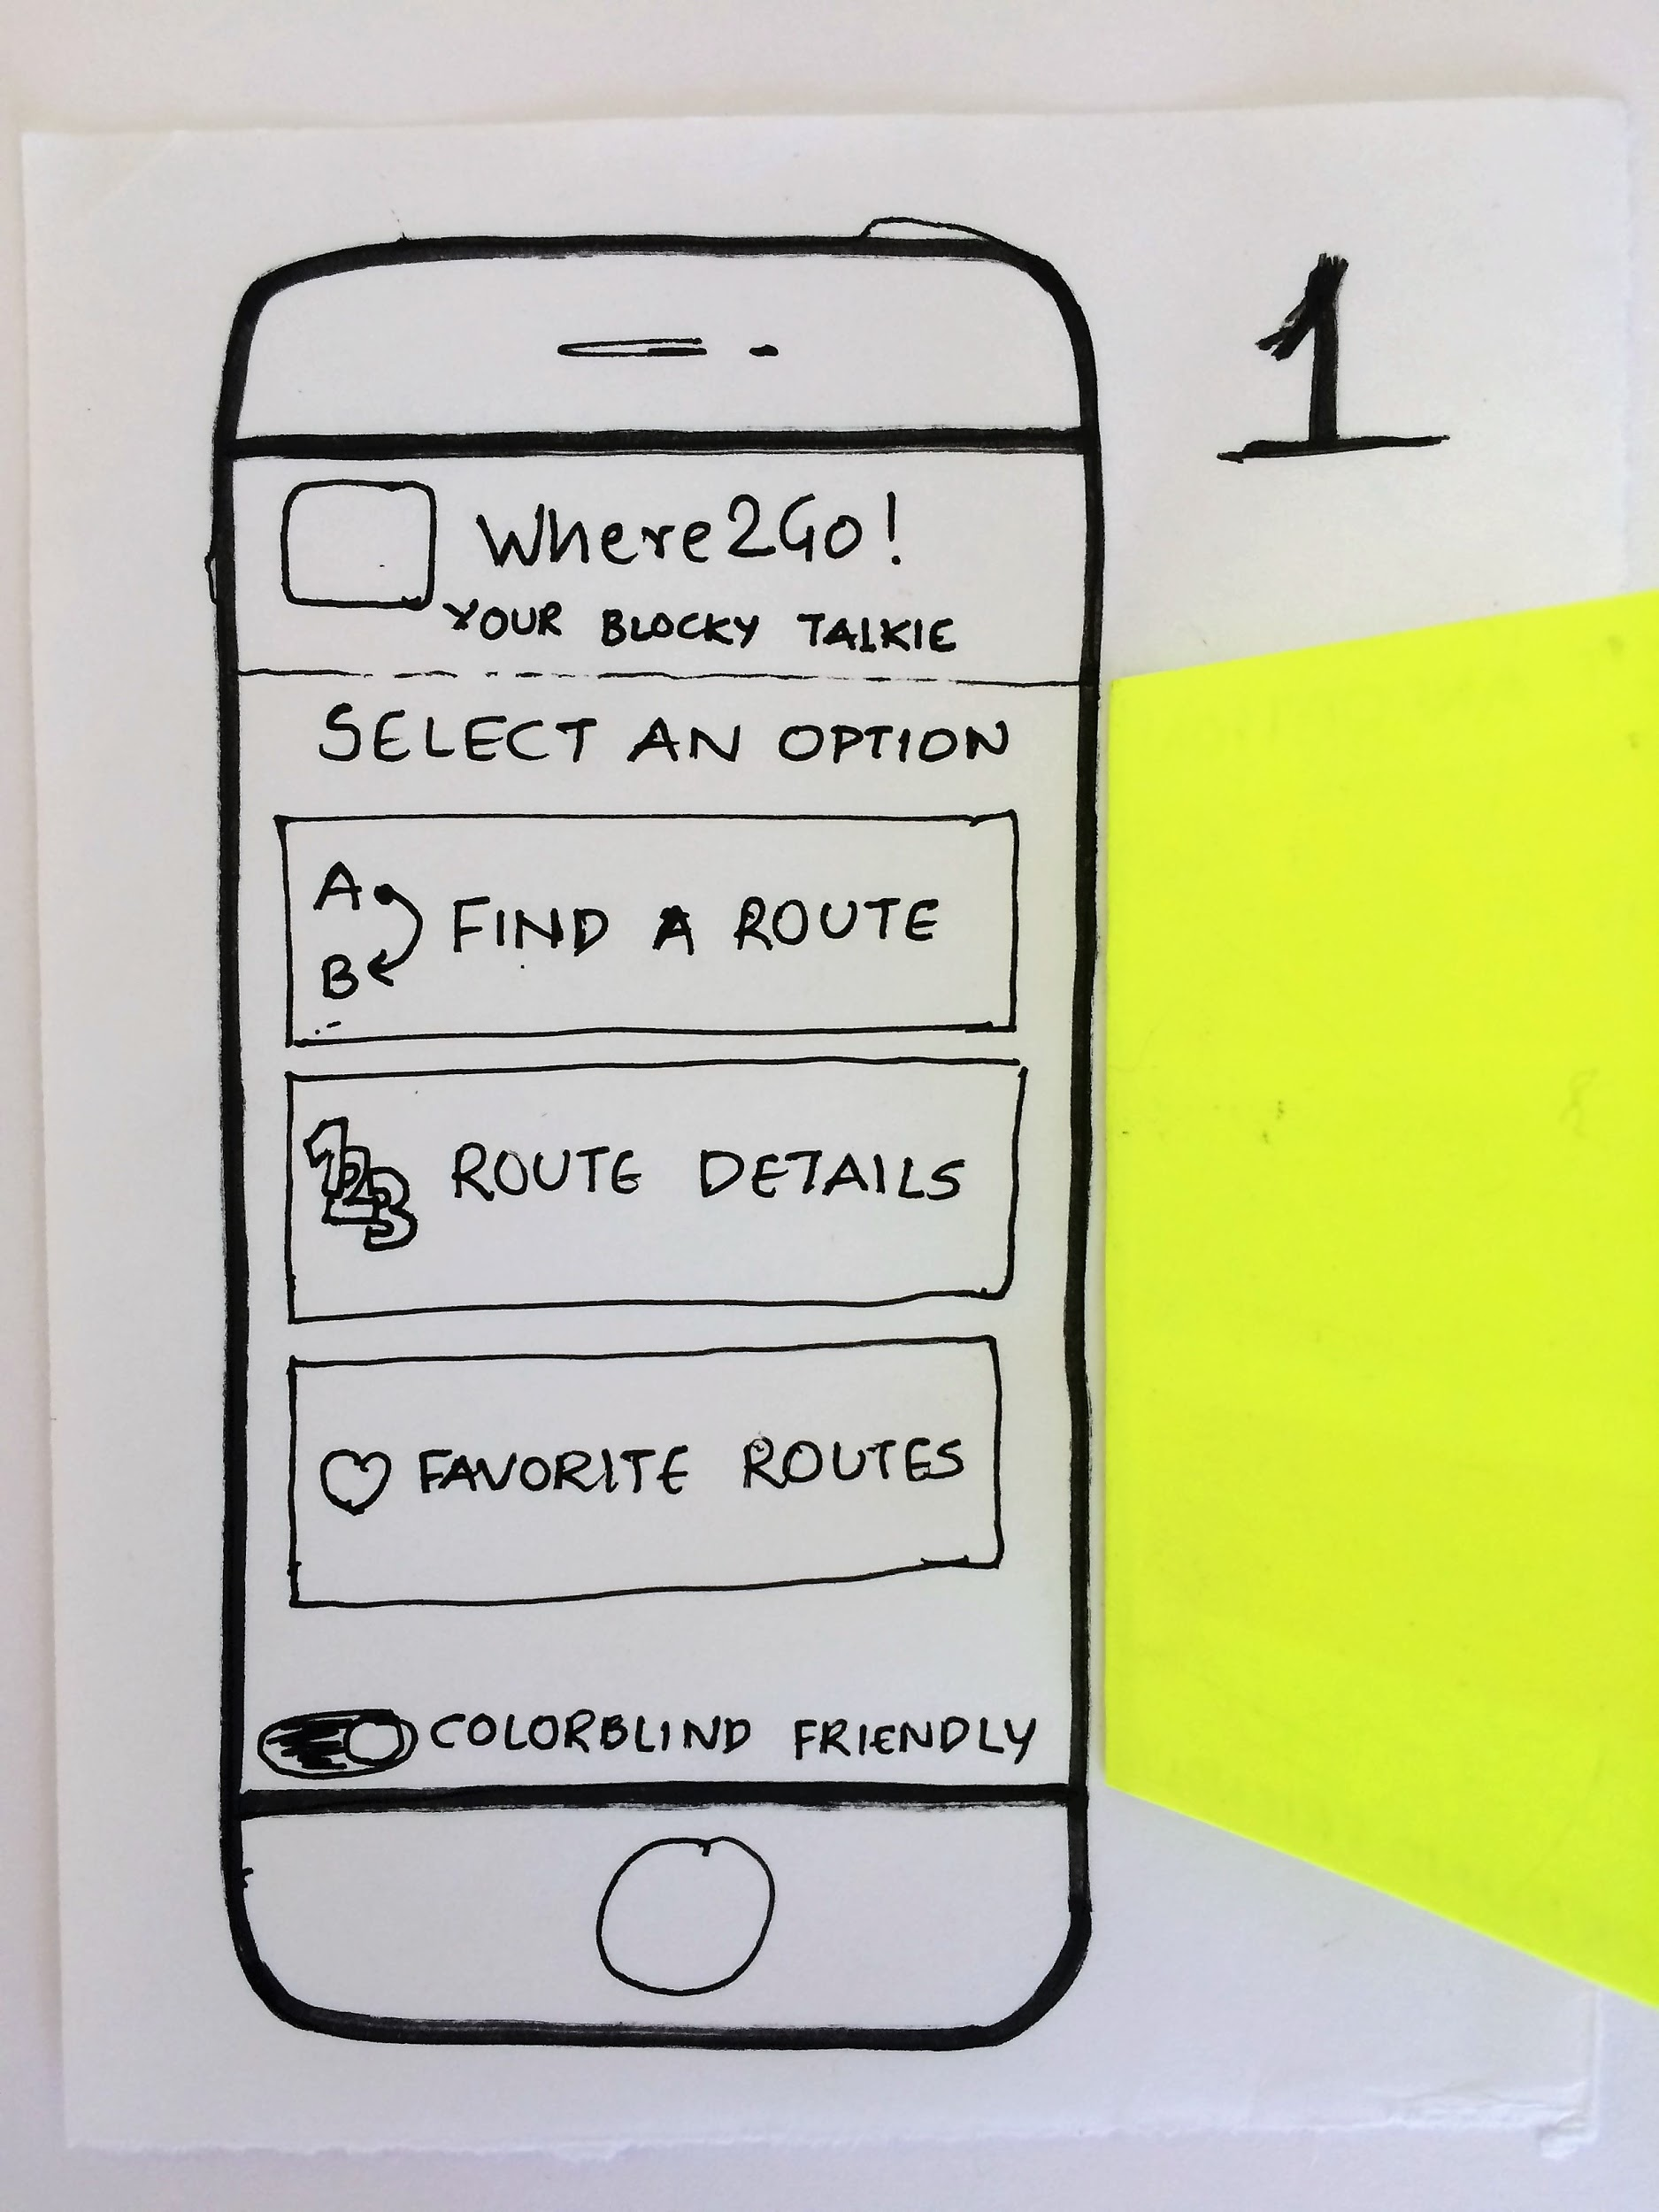 1
Where2Go!
YOUR BLOCKY TALKIE
SELECT AN OPTION
A
B
FIND A ROUTE
123
ROUTE DETAILS
FAVORITE ROUTES
COLORBLIND FRIENDLY